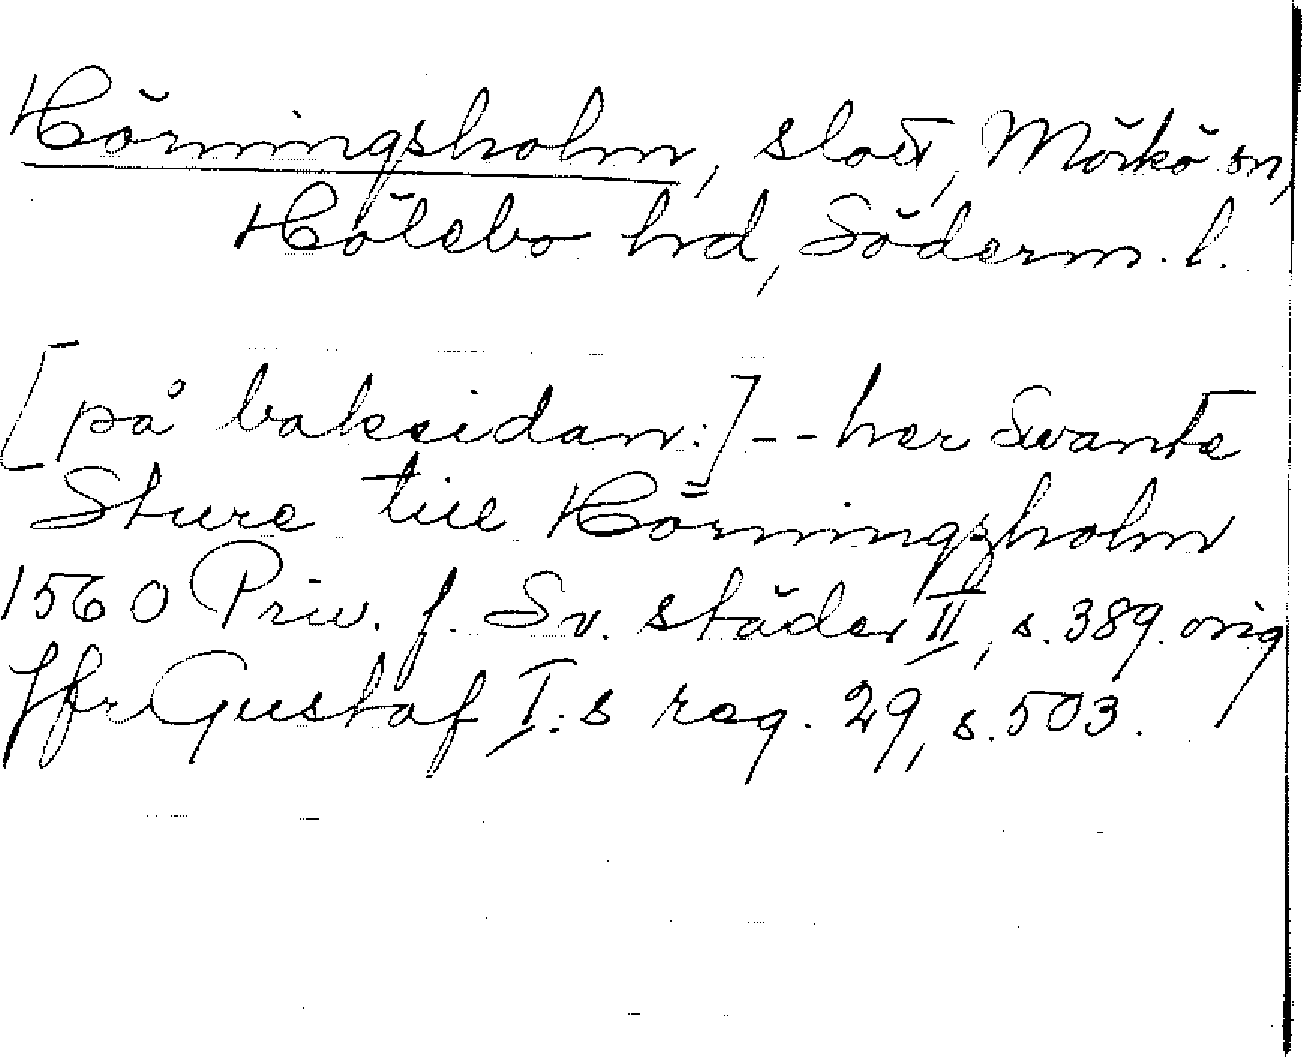 Hörningsholm, slott, Mörkö sn,
Hölebo hd, Söderm. l.
[på baksidan:] -- her Swante
Sture till Hörningzholm
1560 Priv. f. Sv. städer II, s. 389. orig
Jfr Gustaf I:s reg. 29, s. 503.